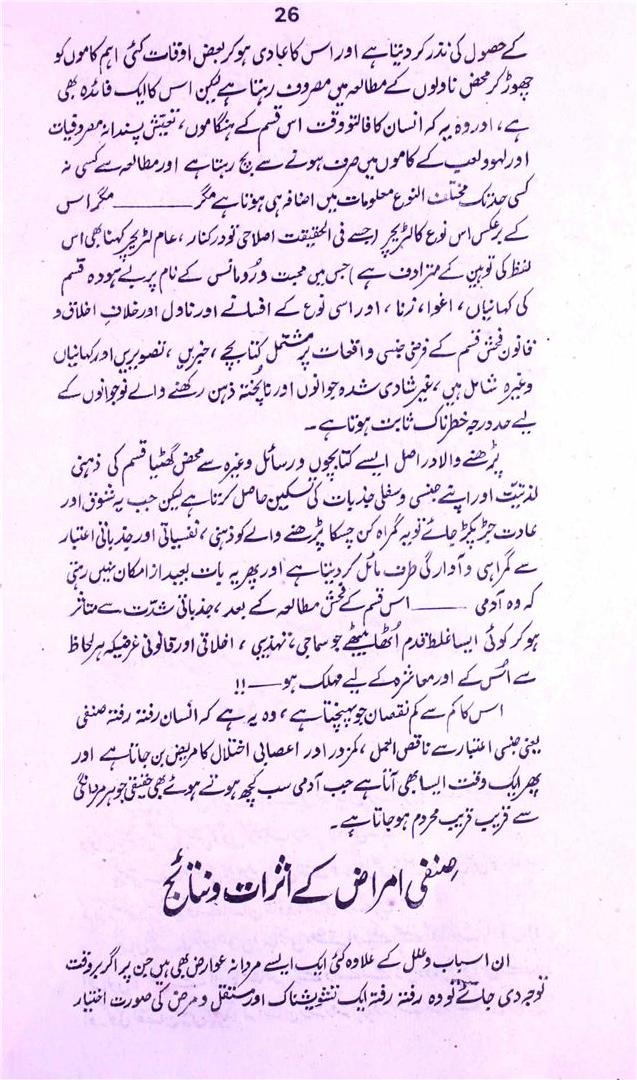 26
کے حصول کی نذر کر دیتا ہے اور اس کا عادی ہو کر بعض اوقات کئی اہم کاموں کو
چھوڑ کر محض ناولوں کے مطالعہ میں مصروف رہتا ہے لیکن اس کا ایک فائدہ بھی
ہے، اور وہ یہ کہ انسان کا فالتو وقت اس قسم کے ہنگاموں، تعیش پسندانہ مصروفیات
اور لہو و لعب کے کاموں میں صرف ہونے سے بچ رہتا ہے اور مطالعہ سے کسی نہ
کسی حد تک مختلف النوع معلومات میں اضافہ ہی ہوتا ہے مگر ——— مگر اس
کے برعکس اس نوع کا لٹریچر (جسے فی الحقیقت اصلاحی تو درکنار، عام لٹریچر کہنا بھی اس
لفظ کی توہین کے مترادف ہے) جس میں محبت و رومانس کے نام پر بے ہودہ قسم
کی کہانیاں، اغوا، زنا، اور اسی نوع کے افسانے اور ناول اور خلافِ اخلاق و
قانون فحش قسم کے فرضی جنسی واقعات پر مشتمل کتابچے، خبریں، تصویریں اور کہانیاں
وغیرہ شامل ہیں، غیر شادی شدہ جوانوں اور ناپختہ ذہن رکھنے والے نوجوانوں کے
لیے حد درجہ خطرناک ثابت ہوتا ہے۔
پڑھنے والا دراصل ایسے کتابچوں و رسائل وغیرہ سے محض گھٹیا قسم کی ذہنی
لذتیت اور اپنے جنسی و سفلی جذبات کی تسکین حاصل کرتا ہے لیکن جب یہ شوق اور
عادت جڑ پکڑ جائے تو یہ گمراہ کن چسکا پڑھنے والے کو ذہنی، نفسیاتی اور جذباتی اعتبار
سے گمراہی و آوارگی کی طرف مائل کر دیتا ہے اور پھر یہ بات بعید از امکان نہیں رہتی
کہ وہ آدمی —— اس قسم کے فحش مطالعہ کے بعد، جذباتی شدّت سے متاثر
ہو کر کوئی ایسا غلط قدم اُٹھا بیٹھے جو سماجی، تہذیبی، اخلاقی اور قانونی غرضیکہ ہر لحاظ
سے اُس کے اور معاشرہ کے لیے مہلک ہو —— !!
اس کا کم سے کم نقصان جو پہنچتا ہے، وہ یہ ہے کہ انسان رفتہ رفتہ صنفی
یعنی جنسی اعتبار سے ناقص العمل، کمزور اور اعصابی اختلال کا مریض بن جاتا ہے اور
پھر ایک وقت ایسا بھی آتا ہے جب آدمی سب کچھ ہوتے ہوئے بھی حقیقی جوہرِ مردانگی
سے قریب قریب محروم ہو جاتا ہے۔
صنفی امراض کے اثرات و نتائج
ان اسباب و علل کے علاوہ کئی ایک ایسے مردانہ عوارض بھی ہیں جن پر اگر بروقت
توجہ دی جائے تو وہ رفتہ رفتہ ایک تشویشناک اور مستقل مرض کی صورت اختیار